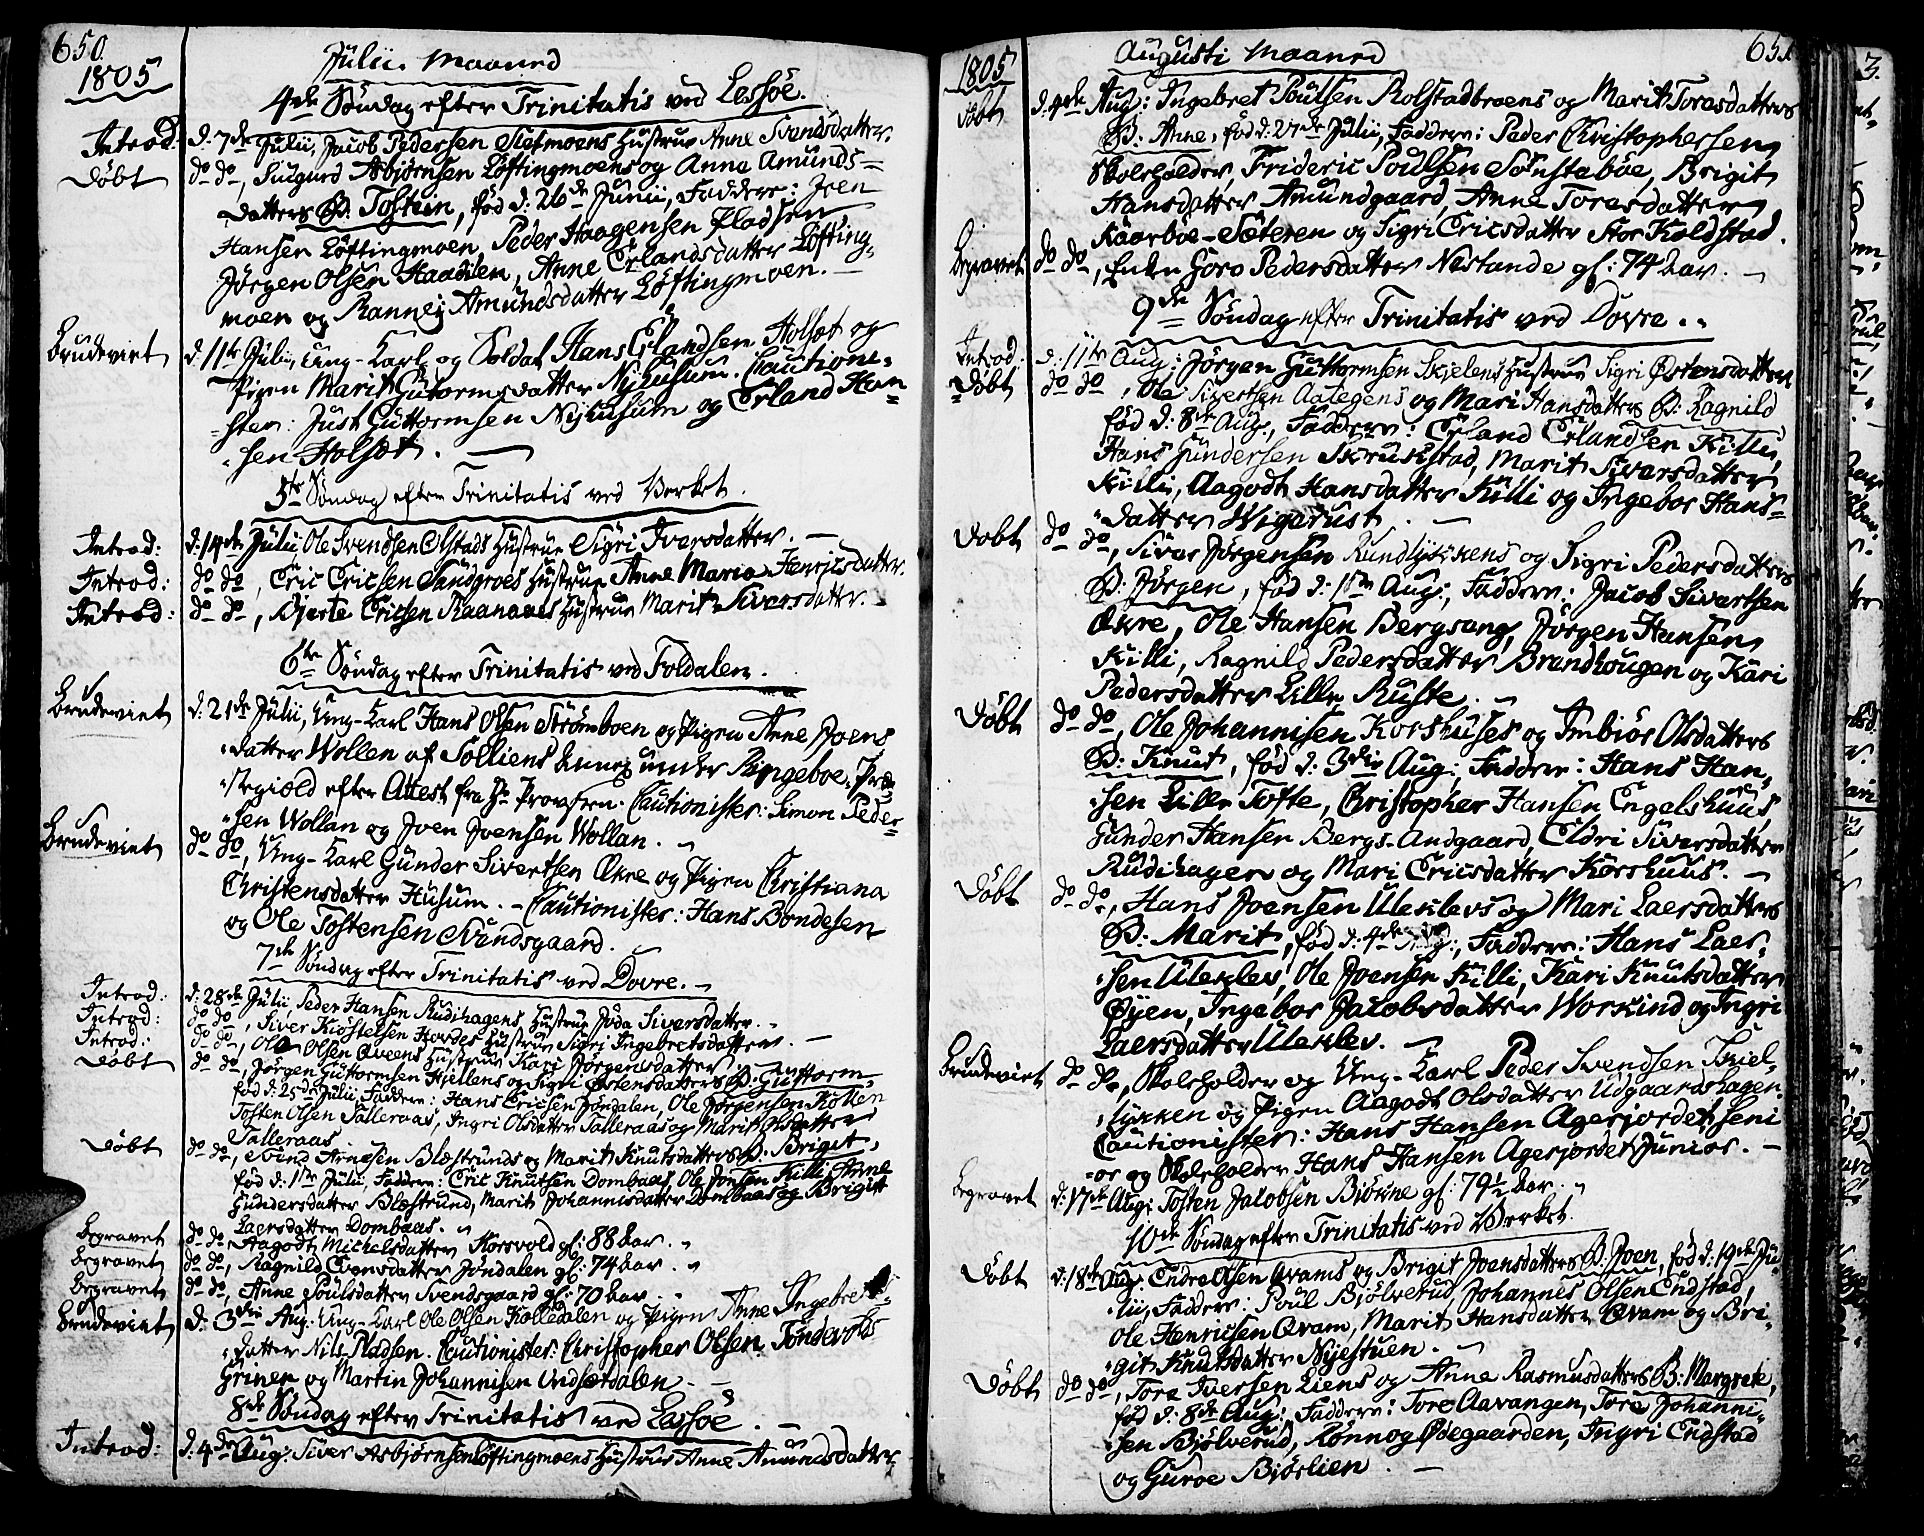 650.
1805
Julii Maaned
4de Søndag efter Trinitatis ved Lessøe.
Introd: d: 7de Julii, Jacob Pedersen Slefmoens Hustrue Anne Svendsdatter.
Døbt do do, Siugurd Asbjørnsen Løftingmoens og Anna Amunds=
datters B: Tostein, fød d: 26de Junii, Faddere: Joen
Hansen Løftingmoen, Peder Haagensen Pladsen
Jørgen Olsen Haaslen, Anne Erlandsdatter Løfting-
moen og Rannej Amundsdatter Løftingmoen.
Brudeviet d: 11te Julii, Ung-Karl og Soldat Hans Erlandsen Holsæt og
Pigen Marit Gutormsdatter Nyhusum. Cautioni-
ster: Just Guttormsen Nyhusum og Erland Han=
sen Holsæt.
5te Søndag efter Trinitatis ved Verket.
Introd: d: 14de Julii Ole Svendsen Olstads Hustrue Sigri Iversdatter.
Introd: do do, Eric Ericsen Sandgroes Hustrue Anne Maria Henricsdatter.
Introd: do do, Bjerte Ericsen Raanaaes Hustrue Marit Siversdatter.
6te Søndag efter Trinitatis ved Foldalen.
Brudeviet d: 21de Julii, Ung-Karl Hans Olsen Strømboen og Pigen Anne Joens
datter Wollen af Solliens Annex under Ringeboe Præ-
stegiæld efter Attest fra Hr Provsten. Cautionister: Simon Peder=
sen Wollan og Joen Joensen Wollan.
Brudeviet do do, Ung-Karl Gunder Sivertsen Økre og Pigen Christiana
Christensdatter Husum. - Cautionister: Hans Bondesen
og Ole Tostensen Svendsgaard.
7de Søndag efter Trinitatis ved Dovre.
Introd: d: 28de Julii, Peder Hansen Rudihagens Hustrue Joda Siversdatter.
Introd: do do, Siver Kiøstelsen Hordes Hustrue Sigri Ingebretsdatter.
Introd: do do, Ole Olsen Qveens Hustrue Kari Jørgensdatter.
Døbt do do, Jørgen Guttormsen Hjellens og Sigri Østensdatters B: Guttorm,
fød d: 25de Julii, Faddere: Hans Ericsen Jøndalen, Ole Jørgensen Kollen
Tosten Olsen Talleraas, Ingri Olsdatter Talleraas og Marit Olsdatter
Talleraas
Døbt do do, Evind Arnesen Blæstrunds og Marit Knutsdatters B: Brigit,
fød d: 1ste Julii, Faddere: Eric Knutsen Dombaas, Ole Jonsen Killi, Anne
Gundersdatter Blæstrund, Marit Johannisdatter Dombaas og Brigit
Laersdatter Dombaas.
Begravet do do, Aagodt Michelsdatter Korsvold gl: 88 aar.
Begravet do do, Ragnild Evensdatter Jøndalen gl: 74 aar.
Begravet do do, Anne Poulsdatter Svendsgaard gl: 70 aar.
Brudeviet d: 3die Aug: Ung-Karl Ole Olsen Kolledalen og Pigen Anne Ingebre
datter Nils-Pladsen. Cautionister: Christopher Olsen Tøndevolds
Grinen og Martin Johannisen Undsetdalen.
8de Søndag efter Trinitatis ved Lessøe.
Introd: d: 4de Aug: Siver Asbjørnsen Løftingmoens Hustrue Anne Amundsdatter
651.
1805
Augusti Maaned
Døbt d: 4de Aug: Ingebret Poulsen Rolstadbroens og Marit Toresdatters
B: Anne, fød d: 27de Julii, Faddere: Peder Christophersen
Skoleholder, Frideric Poulsen Sønstebøe, Brigit
Hansdatter Amundgaard, Anne Toresdatter
Kaarboe-Sæteren og Sigri Ericsdatter Stor Koldstad.
Begravet do do, Enken Goro Pedersdatter Nestande gl: 74 aar.
9de Søndag efter Trinitatis ved Dovre.
Introd. d: 11te Aug: Jørgen Guttormsen Skjelens Hustrue Sigri Østensdatter
Døbt do do, Ole Sivertsen Aalegens og Mari Hansdatters B: Ragnild
fød d: 8de Aug:, Faddere: Erland Erlandsen Killi,
Hans Gundersen Skrukstad, Marit Sivarsdatter
Killi, Aagodt Hansdatter Killi og Ingebor Hans=
datter Wigerust.
Døbt do do, Sivar Jørgensen Rundlykkens og Sigri Pedersdatters
B: Jørgen, fød d: 1ste Aug:, Faddere: Jacob Sivertsen
Økre, Ole Hansen Bergseng, Jørgen Hansen
Killi, Ragnild Pedersdatter Brandhougen og Kari
Pedersdatter Lille Ruste.
Døbt do do, Ole Johannisen Korshuses og Imbiør Olsdatters
B: Knut, fød d: 3die Aug:, Faddere: Hans Han-
sen Lille Tofte, Christopher Hansen Engelshuus,
Gunder Hansen Bergs-Andgaard, Eldri Siversdatter
Rudihagen og Mari Ericsdatter Korshuus.
Døbt do do, Hans Joensen Ulekleves og Mari Laersdatters
B: Marit, fød d: 4de Aug:, Faddere: Hans Laer-
sen Uleklev, Ole Joensen Killi, Kari Knutsdatter
Øyen, Ingebor Jacobsdatter Workind og Ingri
Laersdatter Uleklev.
Brudeviet do do, Skoleholder og Ung-Karl Peder Svendsen Toiel-
lykken og Pigen Aagodt Olsdatter Udgaardshagen.
Cautionister: Hans Hansen Agerjordet seni
or og Skoleholder Hans Hansen Agerjordet Junior.
Begravet d: 17de Aug: Tosten Jacobsen Biørne gl: 79½ aar.
10de Søndag efter Trinitatis ved Verket.
Døbt d: 18de Aug: Endre Olsen Qvams og Brigit Joensdatters B: Joen, fød d: 19de Ju-
lii, Faddere: Poul Bjølverud, Johannes Olsen Endstad,
Ole Henricsen Qvam, Marit Hansdatter Qvam og Bri-
git Knutsdatter Nyestuen.
Døbt do do, Tore Iversen Liens og Anne Rasmusdatters B: Margrete,
fød d: 8de Aug:, Faddere: Tore Aavangen, Tore Johanni-
sen Bjølverud, Rønnog Ødegaarden, Ingri Endstad
og Guroe Bjørlien.